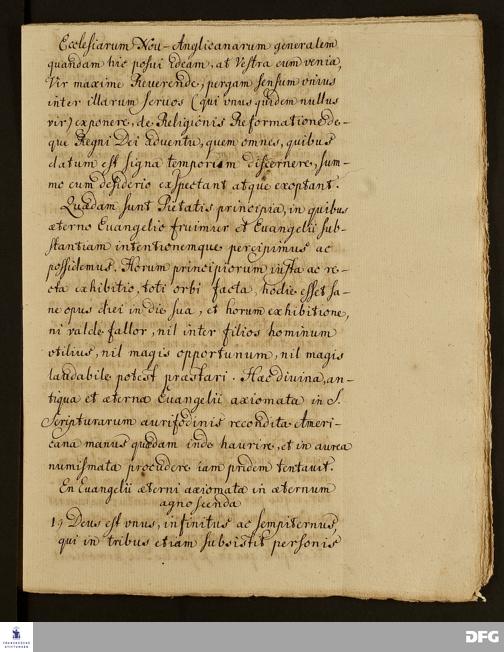 Ecclesiarum Nov-Anglicanarum generalem
quandam hic posui ideam, at Vestra cum venia,
Vir maxime Reverende, pergam sensum vnius
inter illarum servos (qui vnus quidem nullus
vir) exponere, de Religionis Reformatione de-
que Regni Dei adventu, quem omnes, quibus
datum est signa temporum discernere, sum-
mo cum desiderio exspectant atque exoptant.
Quædam sunt Pietatis principia, in quibus
æterno Euangelio fruimur et Euangelii sub-
stantiam intentionemque percipimus ac
possidemus. Horum principiorum iusta ac re-
cta exhibitio, toti orbi facta, hodie esset sa-
ne opus diei in die sua, et horum exhibitione,
ni valde fallor, nil inter filios hominum
vtilius, nil magis opportunum, nil magis
laudabile potest præstari. Hæc divina, an-
tiqua et æterna Euangelii axiomata in S.
Scripturarum aurifodinis recondita Ameri-
cana manus quædam inde haurire, et in aurea
numismata procudere iam pridem tentavit.
En Euangelii æterni axiomata in æternum
agnoscenda
1) Deus est vnus, infinitus ac sempiternus,
qui in tribus etiam subsistit personis
FRANCKESCHE
STIFTUNGEN
DFG